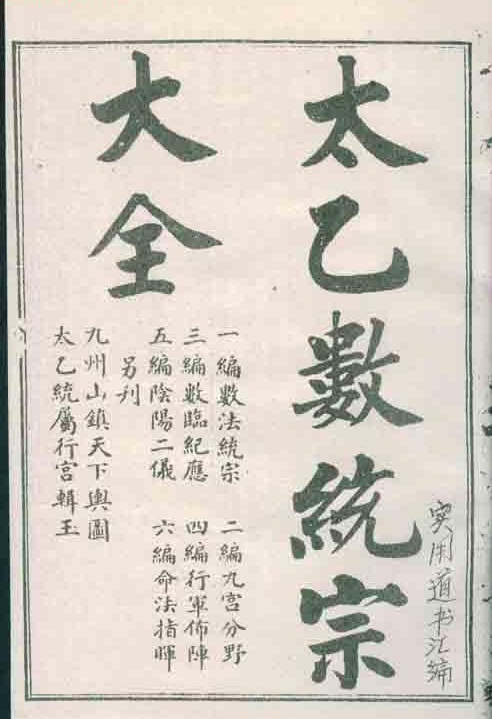 太乙數統宗
大全
一編數法統宗　二編九宮分野
三編數臨紀應　四編行軍佈陣
五編陰陽二儀　六編命法指暉
另刋
九州山鎮天下輿圖
太乙統屬行宮輯玉
实用道书汇编